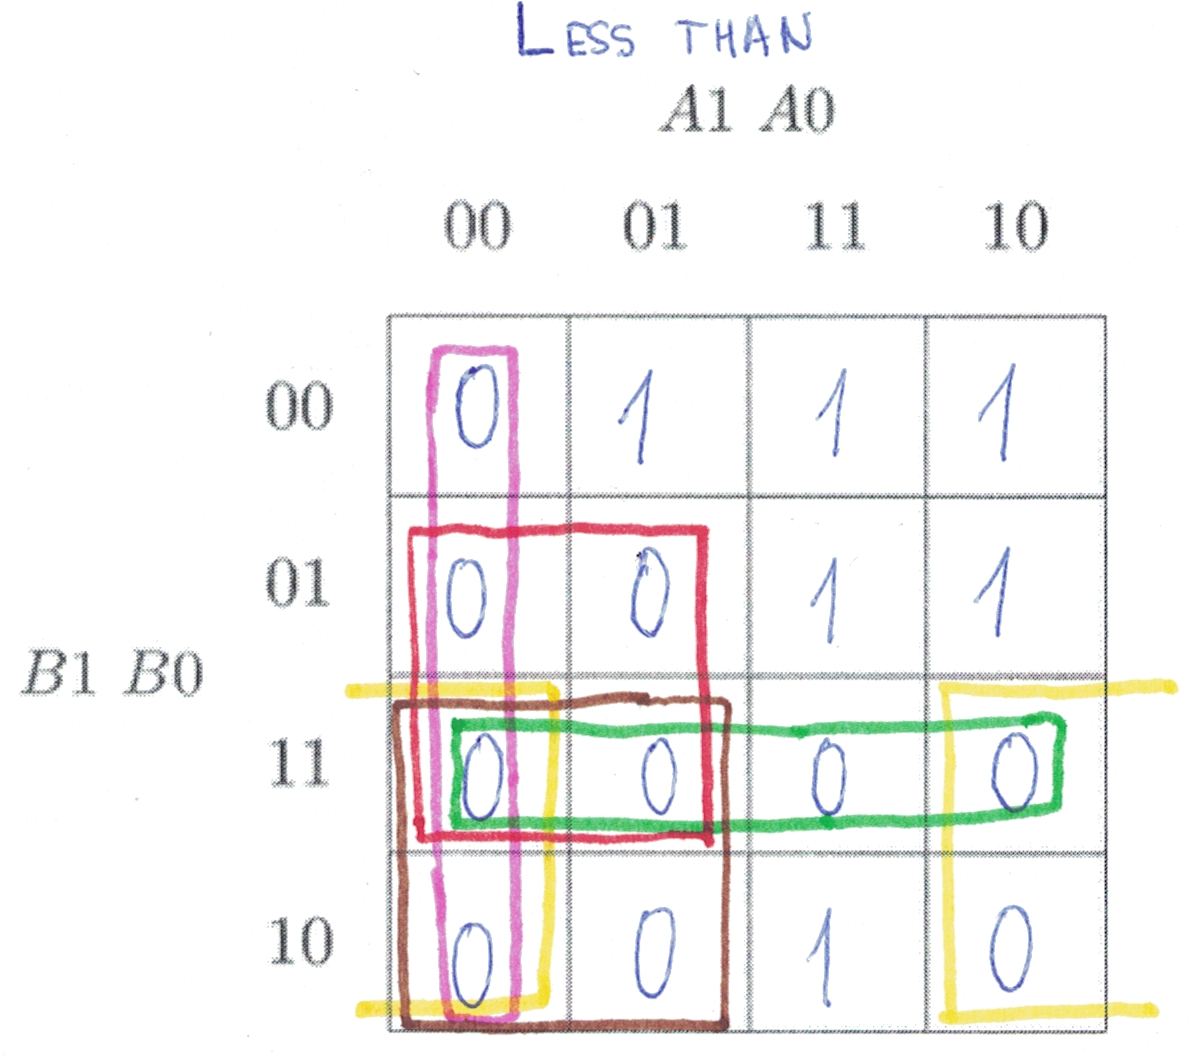 LESS THAN
A1 A0
00 01 11 10
00 0 1 1 1
01 0 0 1 1
B1 B0
11 0 0 0 0
10 0 0 1 0